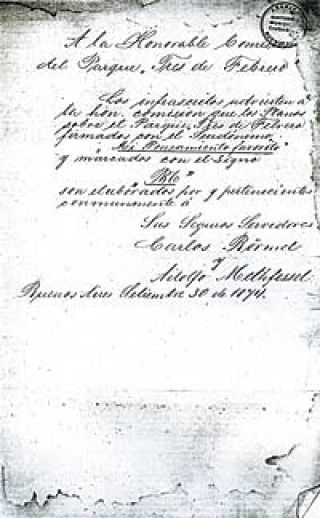 A la Honorable Comision
del Parque, Tres de Febrero"
Los infrascritos advierten á
la hon. comision que los Planos
sobre el Parque, Tres de Febrero
firmados con el Pseudonomo
"Mi Pensamiento favorito"
y marcados con el Signo
son elaborados por y pertenecientes
communmente á
Sus Seguros Servidores
Carlos Börmel
y
Adolfo Methfessel
Buenos Aires Setiembre 30 de 1874.